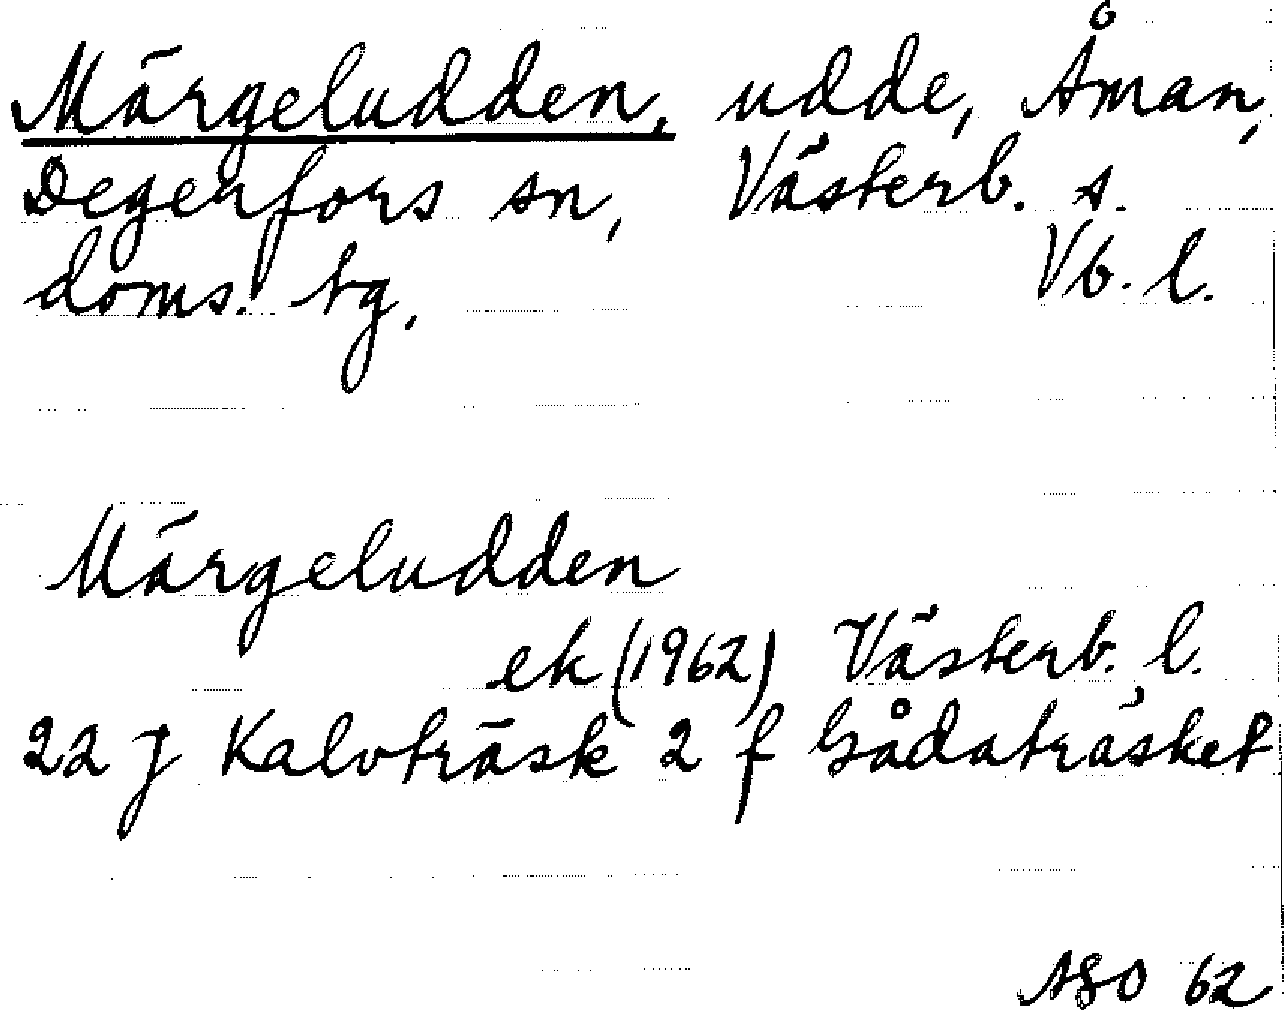 Märgeludden, udde, Åman,
Degerfors sn, Västerb. s.
doms. tg, Vb. l.
Märgeludden
ek (1962) Västerb. l.
22 J Kalvträsk 2 f Gådaträsket
ASO 62